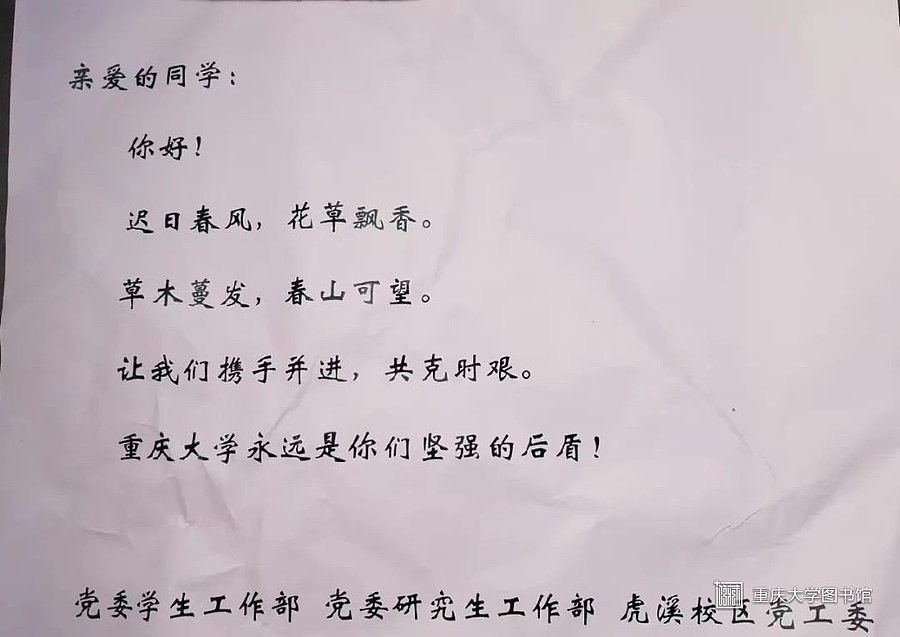 亲爱的同学：
你好！
迟日春风，花草飘香。
草木蔓发，春山可望。
让我们携手并进，共克时艰。
重庆大学永远是你们坚强的后盾！
党委学生工作部 党委研究生工作部 虎溪校区党工委
重庆大学图书馆